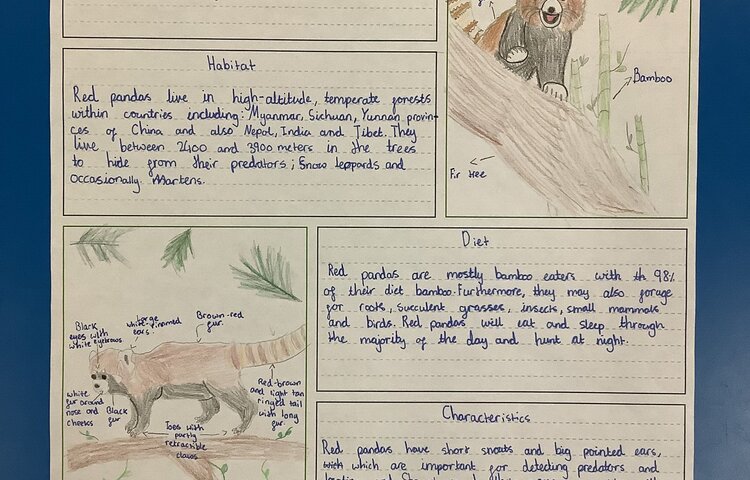 Habitat
Red pandas live in high-altitude, temperate forests
within countries including: Myanmar, Sichuan, Yunnan provin-
ces of China and also Nepol, India and Tibet. They
live between 2400 and 3900 meters in the trees
to hide from their predators; Snow leppords and
occasionally Martens.
Bamboo
Fir tree
Diet
Red pandas are mostly bamboo eaters with th 98%
of their diet bamboo. Furthermore, they may also forage
for roots, succulent grasses, insects, small mammals
and birds. Red pandas will eat and sleep through
the majority of the day and hunt at night.
Black
eyes with
white eyebrows
Large
white-rimmed
ears.
Brown-red
fur.
white
fur around
nose and
cheeks
Black
fur
Toes with
partly
retractible
claws
Red-brown
and light tan
ringed tail
with long
fur.
Characteristics
Red pandas have short snouts and big pointed ears,
which are important for detecting predators and